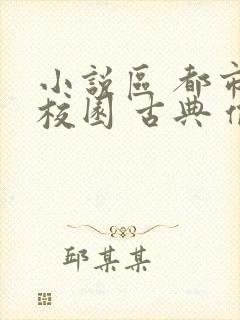 小說區 都市
校園 古典
邱某某